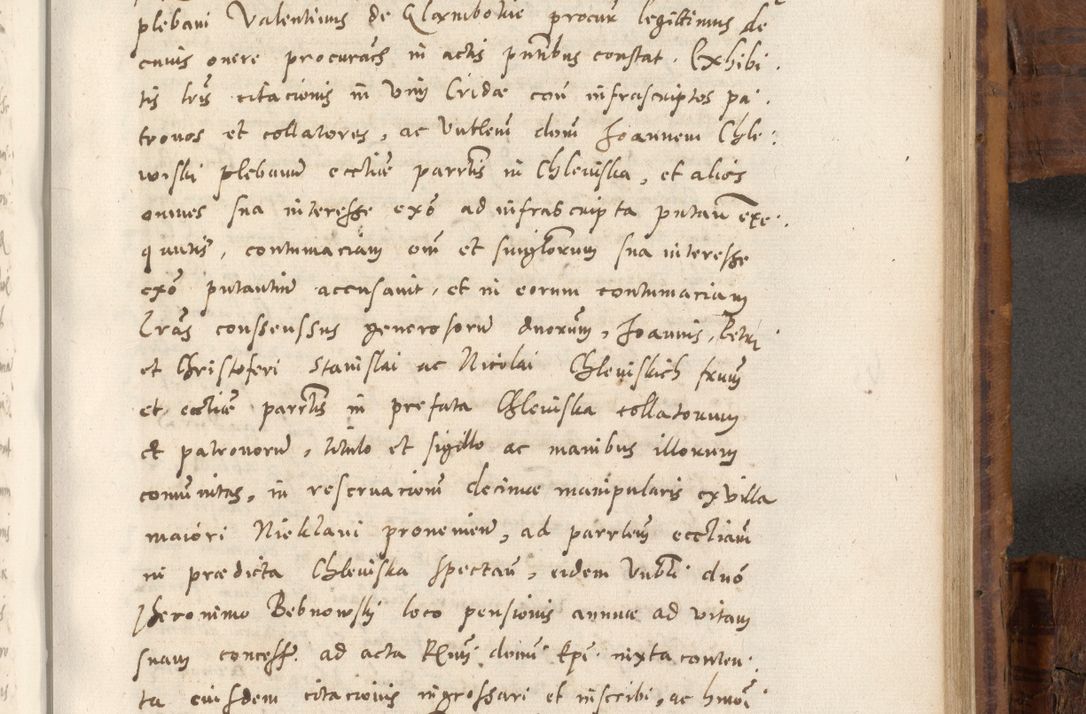 plebani Valentinus de Glambokie procur legittimus de
cuius onere procuracis in actis pntibus constat. Exhibi.
tis lris citacionis in vim Cridæ con infrascriptos pa.
tronos et collatores, ac Vntlem dom Joannem Chle:
wiski plebanum eccliæ parrtis in Chleuiska, et alios
omnes sua interesse exo ad infrascripta putan exe.
quutis, contumaciam om et singlorum sua interesse
exo putantium accusauit, et in eorum contumaciam
lras conssenssus generosorum duorum, Joannis, Petri
et Christoferi Stanislai ac Nicolai Chleuiskich frum
et eccliæ parrtis in prefata Chleuiska collatorum
et patronorum, titulo et sigillo ac manibus illorum
comunitas, in reseruacionem decimæ manipularis ex villa
maiori Nieklani prouenien, ad parrlem eccliam
in prædicta Chleuiska spectan, eidem Vnbli duo
Jheronimo Bebnowski loco pensionis annuæ ad vitam
suam concess. ad acta Rmi domi Epi iuxta conten.
ta eiusdem citacionis ingrossari et inscribi, ac hmoi